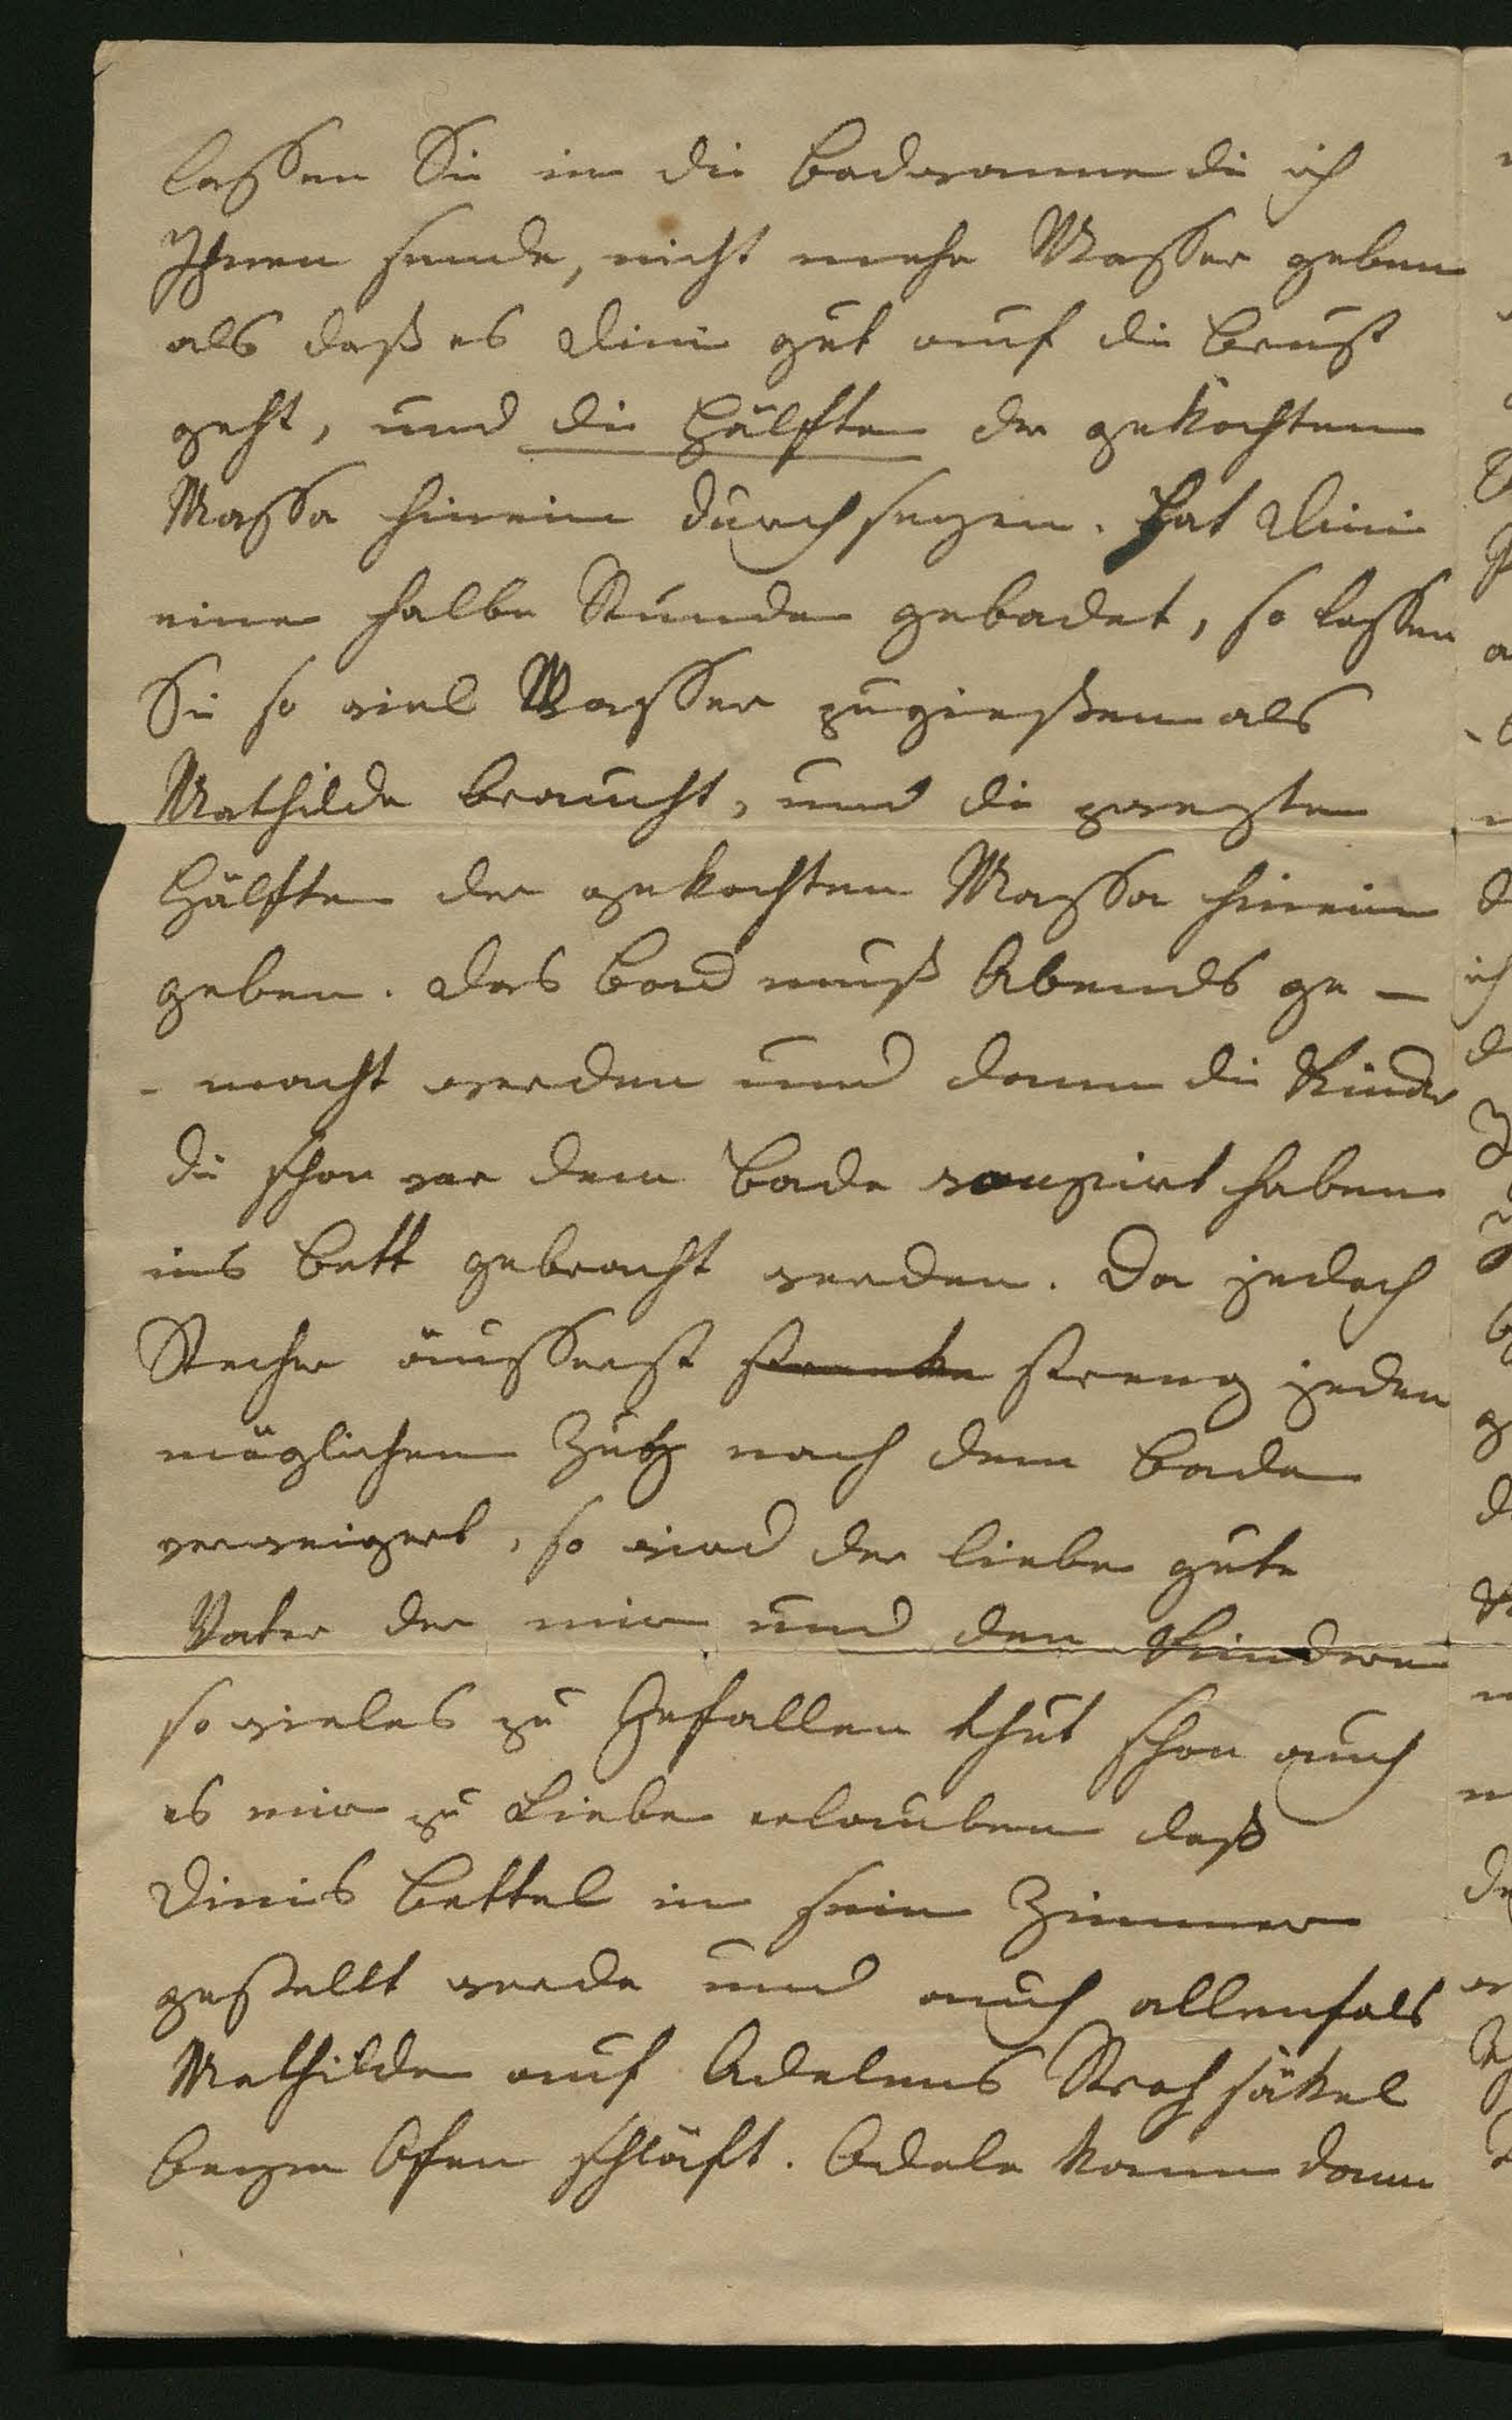 lassen Sie in die Badwanne die ich
Ihnen sende, nicht mehr Wasser geben
als daß es Dini gut auf die Brust
geht, und die Hälfte der gekochten
Massa hinein durchseyen. Hat Dini
eine halbe Stunde gebadet, so lassen
Sie so viel Wasser zugießen als
Mathilde braucht, und die zweyte
Hälfte der gekochten Massa hinein
geben. Das Bad muß Abends ge-
-macht werden und dann die Kinder
die schon vor dem Bade soupirt haben
ins Bett gebracht werden. Da jedoch
Stecher äusserst streng jeden
möglichen Zug nach dem Bade
verweigert, so wird der liebe gute
Vater der mir und den Kindern
so vieles zu Gefallen thut schon auch
es mir zu Liebe erlauben daß
Dinis Bettel in sein Zimmer
gestellt werde und auch allenfals
Mathilde auf Adelens Strohsäkel
beym Ofen schläft. Adele kann dann